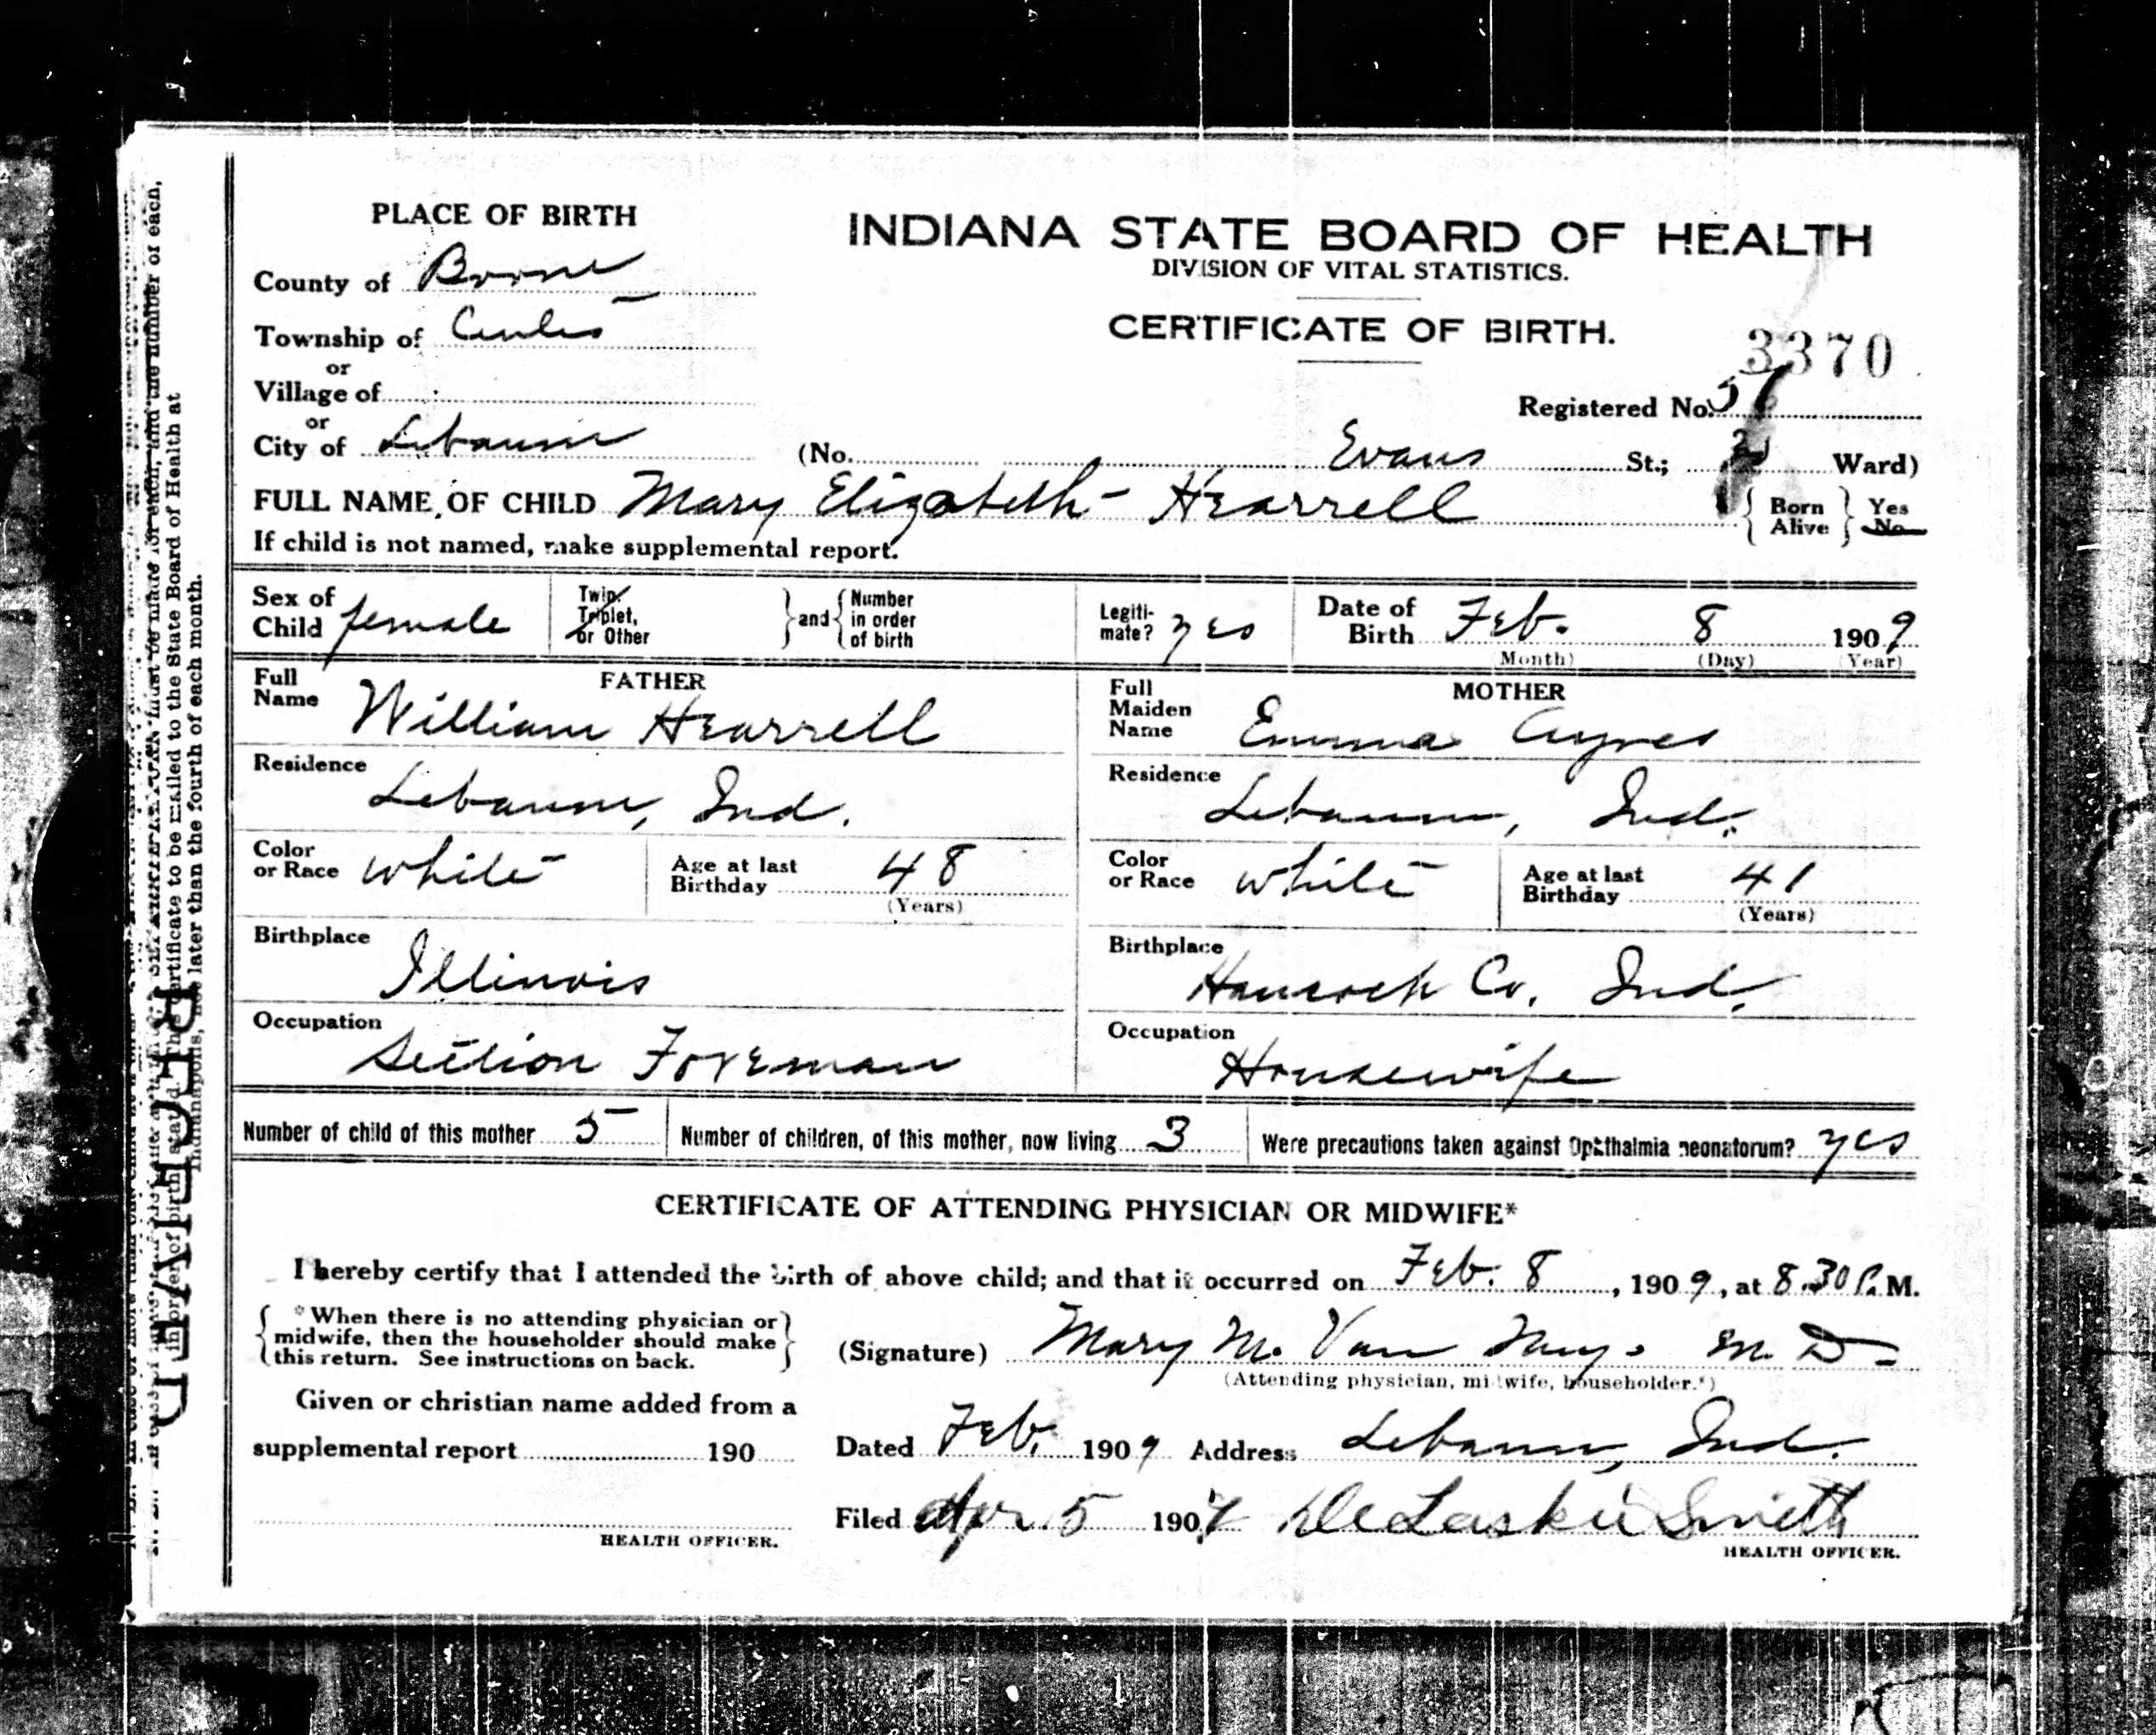 PLACE OF BIRTH
INDIANA STATE BOARD OF HEALTH
DIVISION OF VITAL STATISTICS.
CERTIFICATE OF BIRTH.
3370
County of Boone
Township of Center
or
Village of
or
City of Lebanon
Registered No.
(No. Evans St.; 2 Ward)
FULL NAME OF CHILD Mary Elizabeth Hearrell
Born Alive Yes No
If child is not named, make supplemental report.
Sex of Child female
Twin, Triplet, or Other and Number in order of birth
Legitimate? yes
Date of Birth Feb. 8 1909
(Month) (Day) (Year)
FATHER
Full Name William Hearrell
Residence Lebanon, Ind.
Color or Race white
Age at last Birthday 48
(Years)
Birthplace Illinois
Occupation Section Foreman
MOTHER
Full Maiden Name Emma Ayres
Residence Lebanon, Ind.
Color or Race white
Age at last Birthday 41
(Years)
Birthplace Hancock Co. Ind.
Occupation Housewife
Number of child of this mother 5
Number of children, of this mother, now living 3
Were precautions taken against Ophthalmia neonatorum? yes
CERTIFICATE OF ATTENDING PHYSICIAN OR MIDWIFE*
I hereby certify that I attended the birth of above child; and that it occurred on Feb. 8, 1909, at 8.30 P. M.
*When there is no attending physician or
midwife, then the householder should make
this return. See instructions on back.
(Signature) Mary M. Van M. D.
(Attending physician, midwife, householder.*)
Given or christian name added from a
supplemental report 190
HEALTH OFFICER.
Dated Feb. 1909 Address Lebanon, Ind.
Filed Apr. 5 1909 DeLaskie Smith
HEALTH OFFICER.
RECEIVED
certificate to be mailed to the State Board of Health at
Indianapolis, not later than the fourth of each month.